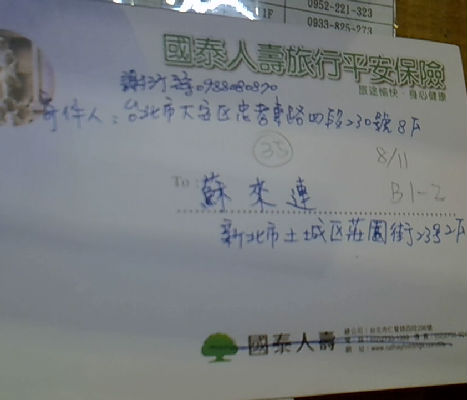 0952-221-323
1F
0933-825-273
國泰人壽旅行平安保險
旅途愉快・身心健康
寄件人：台北市大安区忠孝東路四段230號8F
35
8/11
To:
蘇來連
B1-2
新北市土城区莊園街23号2F
國泰人壽